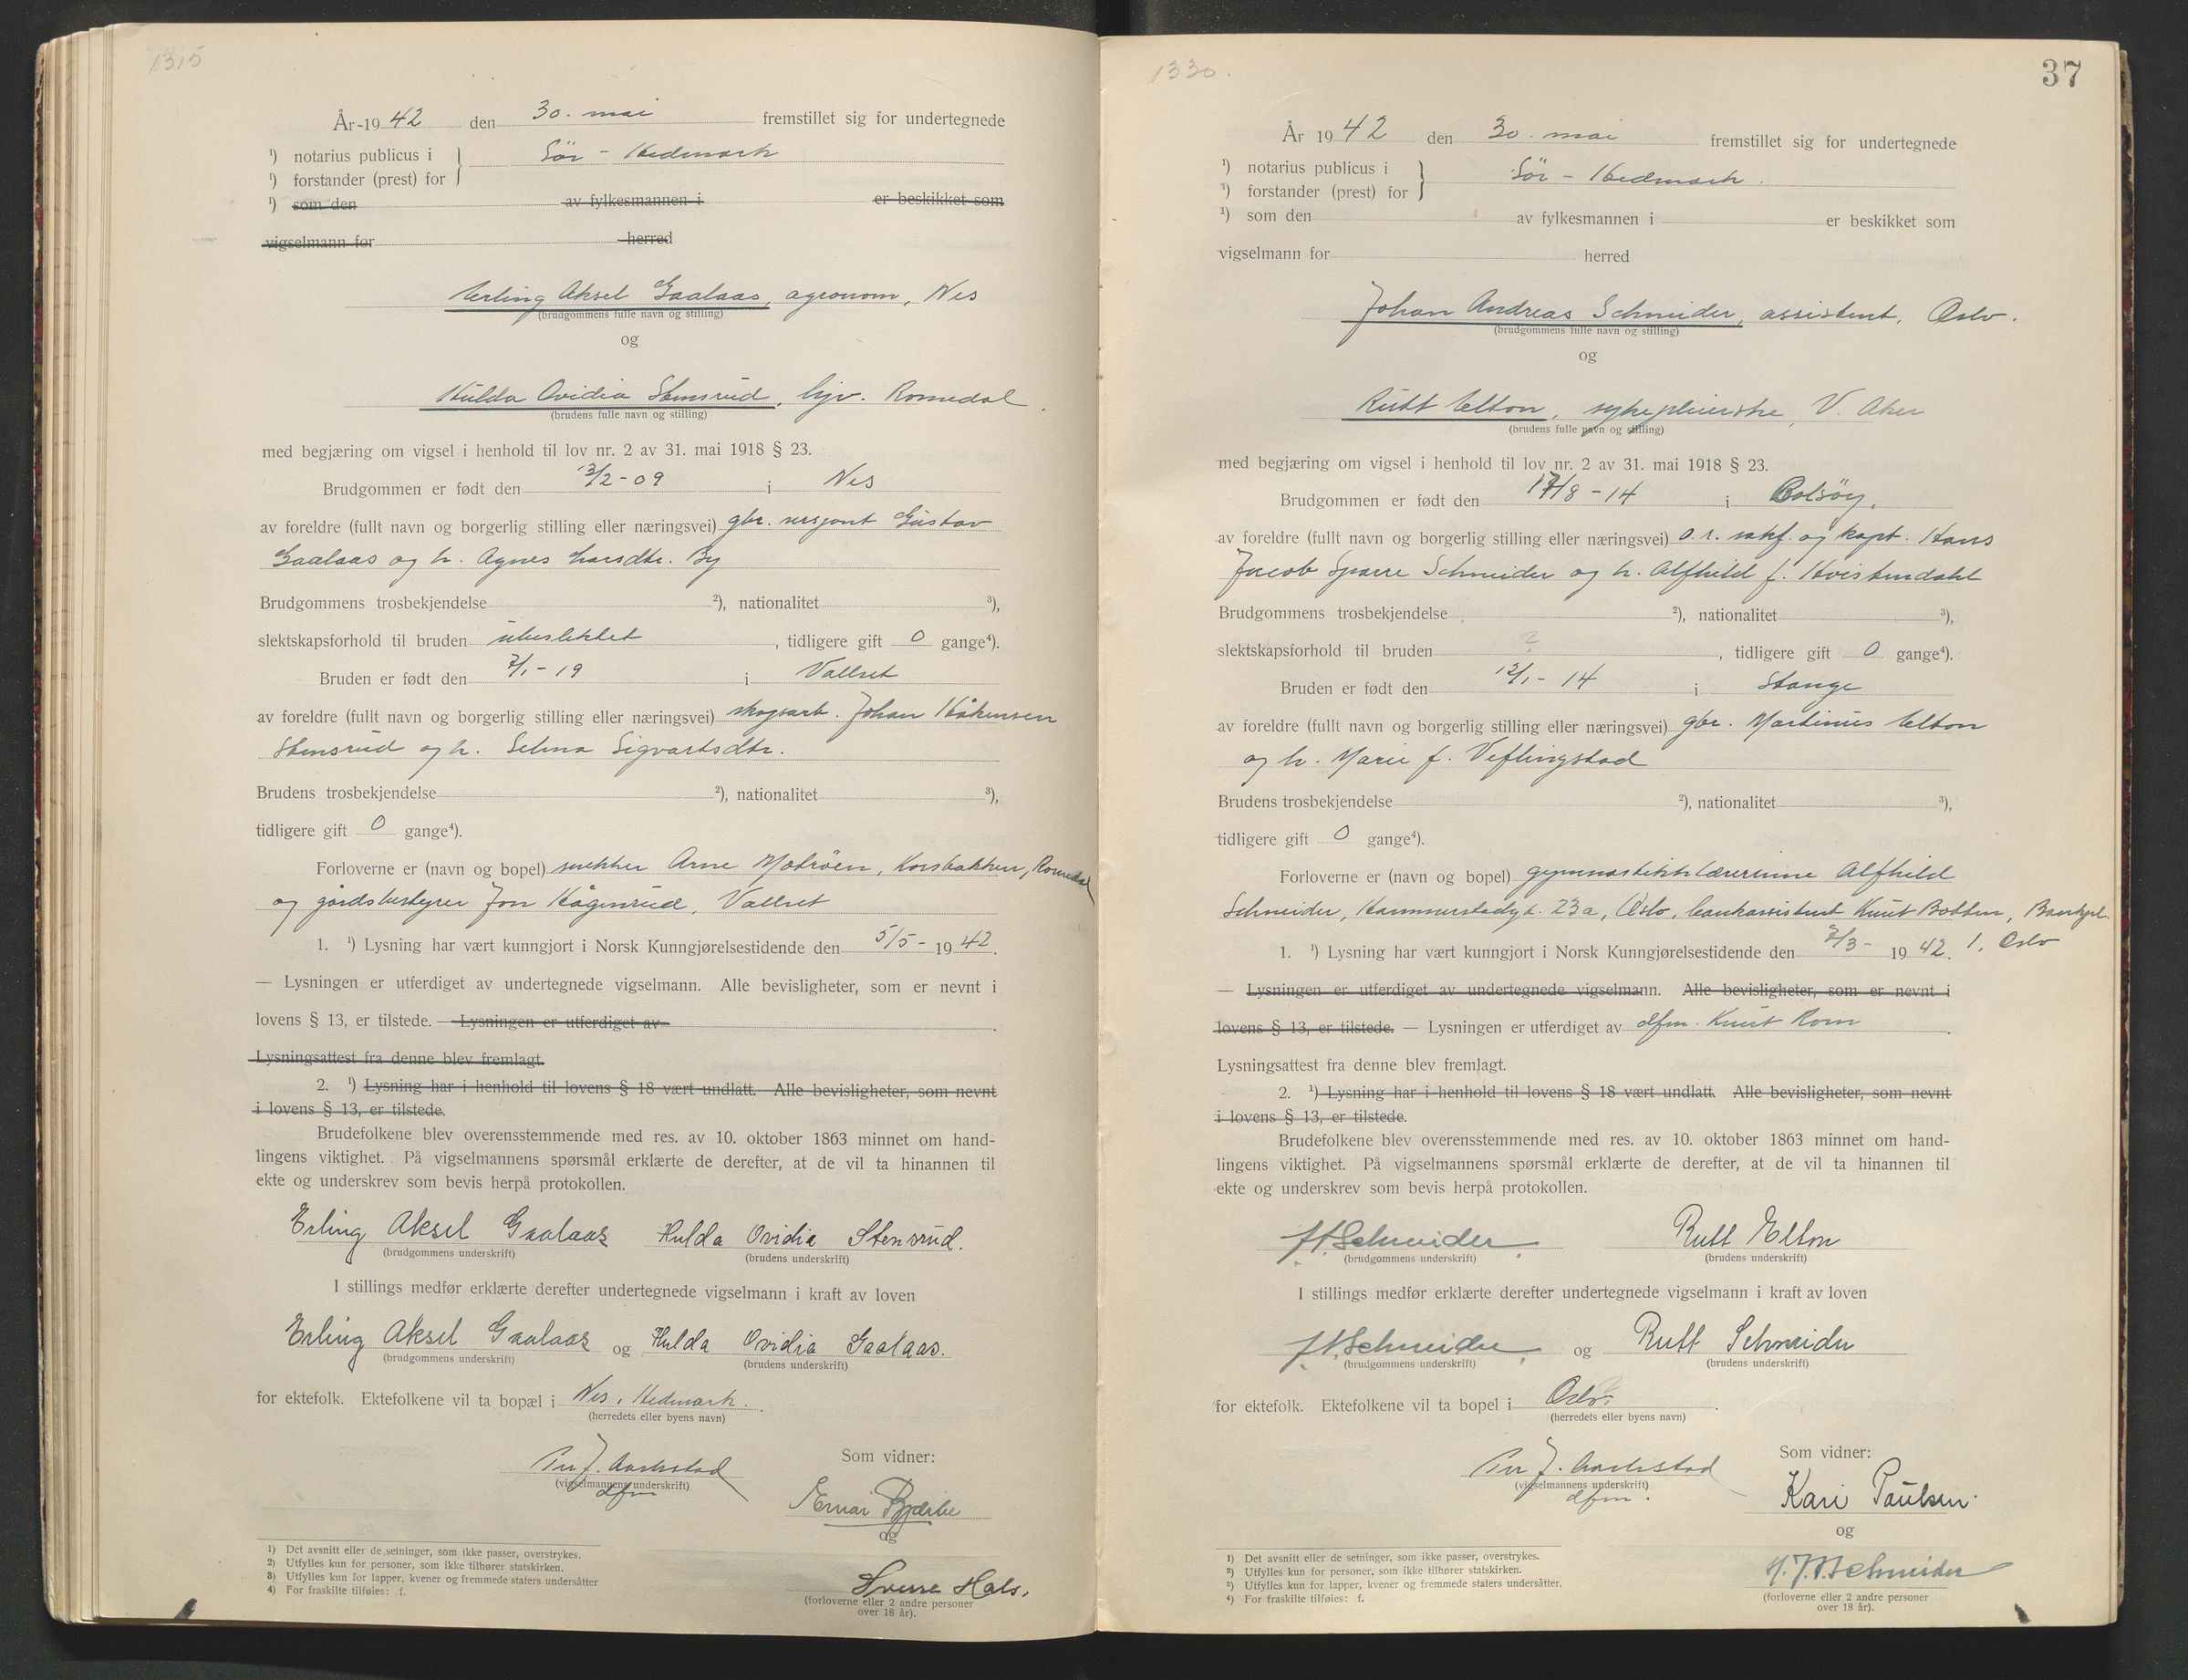 1315
År 1942 den 30. mai fremstillet sig for undertegnede
¹) notarius publicus i } Sör - Hedmark
¹) forstander (prest) for
¹) som den av fylkesmannen i er beskikket som
vigselmann for herred
Erling Aksel Gaalaas, agronom, Nes
(brudgommens fulle navn og stilling)
og
Hulda Ovidia Stensrud, hjv. Romedal
(brudens fulle navn og stilling)
med begjæring om vigsel i henhold til lov nr. 2 av 31. mai 1918 § 23.
Brudgommen er født den 13/2-09 i Nes
av foreldre (fullt navn og borgerlig stilling eller næringsvei) gbr. sersjant Gustav
Gaalaas og h. Agnes Larsdtr. By
Brudgommens trosbekjendelse ²), nationalitet ³),
slektskapsforhold til bruden ubeslektet, tidligere gift 0 gange⁴).
Bruden er født den 7/1-19 i Vallset
av foreldre (fullt navn og borgerlig stilling eller næringsvei) skogsarb. Johan Håkensen
Stensrud og h. Selma Sigvartsdtr.
Brudens trosbekjendelse ²), nationalitet ³),
tidligere gift 0 gange⁴).
Forloverne er (navn og bopel) snekker Arne Motröen, Korsbakken, Romedal
og gårdsbestyrer Jon Hågenrud, Vallset
1. ¹) Lysning har vært kunngjort i Norsk Kunngjørelsestidende den 5/5 - 1942.
— Lysningen er utferdiget av undertegnede vigselmann. Alle bevisligheter, som er nevnt i
lovens § 13, er tilstede. — Lysningen er utferdiget av
Lysningsattest fra denne blev fremlagt.
2. ¹) Lysning har i henhold til lovens § 18 vært undlatt. Alle bevisligheter, som nevnt
i lovens § 13, er tilstede.
Brudefolkene blev overensstemmende med res. av 10. oktober 1863 minnet om hand-
lingens viktighet. På vigselmannens spørsmål erklærte de derefter, at de vil ta hinannen til
ekte og underskrev som bevis herpå protokollen.
Erling Aksel Gaalaas Hulda Ovidia Stensrud.
(brudgommens underskrift) (brudens underskrift)
I stillings medfør erklærte derefter undertegnede vigselmann i kraft av loven
Erling Aksel Gaalaas og Hulda Ovidia Gaalaas.
(brudgommens underskrift) (brudens underskrift)
for ektefolk. Ektefolkene vil ta bopæl i Nes, Hedmark.
(herredets eller byens navn)
Som vidner:
Per J. Aarhstad
(vigselmannens underskrift)
dfm
Einar Bjerke
og
Sverre Hals.
(forloverne eller 2 andre personer
over 18 år).
1) Det avsnitt eller de setninger, som ikke passer, overstrykes.
2) Utfylles kun for personer, som ikke tilhører statskirken.
3) Utfylles kun for lapper, kvener og fremmede staters undersåtter
4) For fraskilte tilføies: f.
1330.
37
År 1942 den 30. mai fremstillet sig for undertegnede
¹) notarius publicus i } Sör - Hedmark.
¹) forstander (prest) for
¹) som den av fylkesmannen i er beskikket som
vigselmann for herred
Johan Andreas Schneider, assistent, Oslo.
(brudgommens fulle navn og stilling)
og
Rutt Elton, sykepleierske, V. Aker
(brudens fulle navn og stilling)
med begjæring om vigsel i henhold til lov nr. 2 av 31. mai 1918 § 23.
Brudgommen er født den 17/8-14 i Bolsöy.
av foreldre (fullt navn og borgerlig stilling eller næringsvei) o.r. sakf. og kapt. Hans
Jacob Sparre Schneider og h. Alfhild f. Hvistendahl
Brudgommens trosbekjendelse ²), nationalitet ³),
slektskapsforhold til bruden ?, tidligere gift 0 gange⁴).
Bruden er født den 12/1-14 i Stange
av foreldre (fullt navn og borgerlig stilling eller næringsvei) gbr. Martinus Elton
og h. Marie f. Veflingstad
Brudens trosbekjendelse ²), nationalitet ³),
tidligere gift 0 gange⁴).
Forloverne er (navn og bopel) gymnastikklærerinne Alfhild
Schneider, Hammerstadgt. 23a, Oslo, bankassistent Knut Botten, Bankpl.
1. ¹) Lysning har vært kunngjort i Norsk Kunngjørelsestidende den 7/3- 1942. 1, Oslo
— Lysningen er utferdiget av undertegnede vigselmann. Alle bevisligheter, som er nevnt i
lovens § 13, er tilstede. — Lysningen er utferdiget av dfm. Knut Rom
Lysningsattest fra denne blev fremlagt.
2. ¹) Lysning har i henhold til lovens § 18 vært undlatt. Alle bevisligheter, som nevnt
i lovens § 13, er tilstede.
Brudefolkene blev overensstemmende med res. av 10. oktober 1863 minnet om hand-
lingens viktighet. På vigselmannens spørsmål erklærte de derefter, at de vil ta hinannen til
ekte og underskrev som bevis herpå protokollen.
J.A. Schneider. Rutt Elton
(brudgommens underskrift) (brudens underskrift)
I stillings medfør erklærte derefter undertegnede vigselmann i kraft av loven
J.A. Schneider. og Rutt Schneider
(brudgommens underskrift) (brudens underskrift)
for ektefolk. Ektefolkene vil ta bopel i Oslo.
(herredets eller byens navn)
Som vidner:
Per J. Aarhstad
(vigselmannens underskrift)
dfm.
Kari Paulsen.
og
H.J.S. Schneider
(forloverne eller 2 andre personer
over 18 år).
1) Det avsnitt eller de setninger, som ikke passer, overstrykes.
2) Utfylles kun for personer, som ikke tilhører statskirken.
3) Utfylles kun for lapper, kvener og fremmede staters undersåtter.
4) For fraskilte tilføies: f.